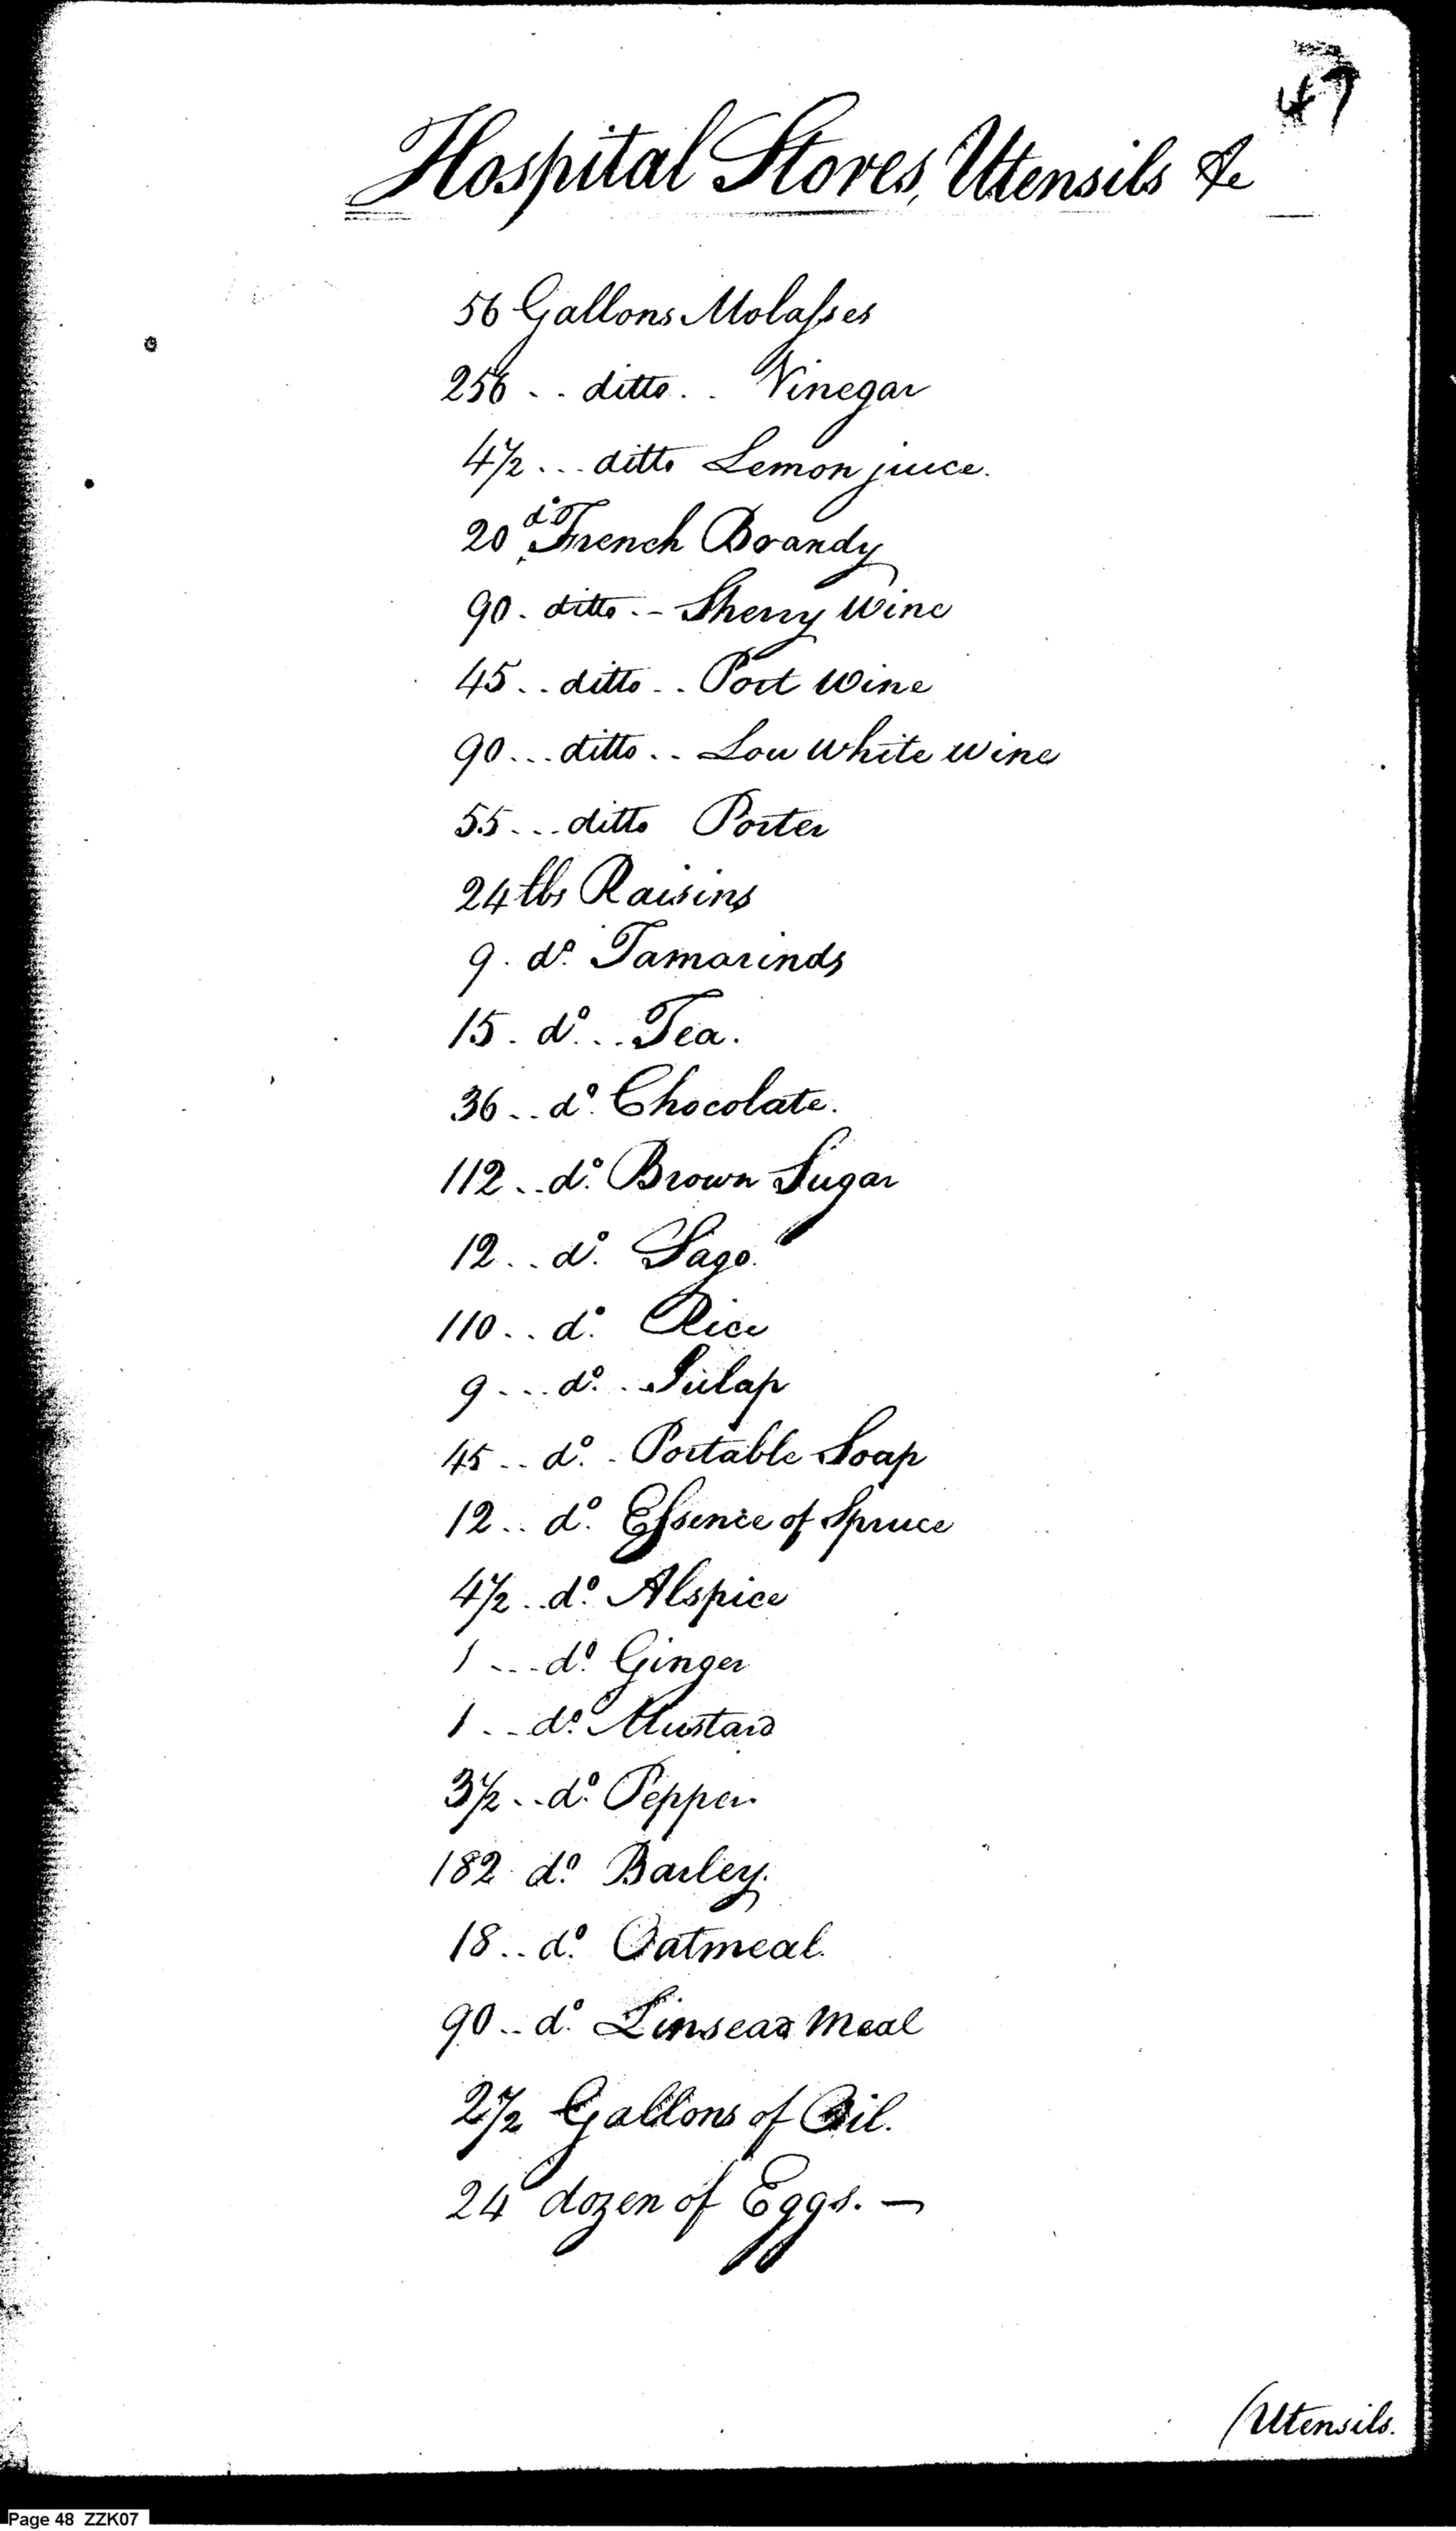 47
Hospital Stores, Utensils &c
56 Gallons Molasses
256 .. ditto .. Vinegar
4½ ... ditto Lemon juice.
20 do French Brandy
90 . ditto .- Sherry Wine
45 .. ditto .. Port Wine
90 ... ditto .. Low White Wine
55 ... ditto Porter
24 lbs Raisins
9 . do. Tamarinds
15 . do. .. Tea.
36 .. do. Chocolate.
112 .. do. Brown Sugar
12 .. do. Sago.
110 .. do. Rice
9 ... do. . Julap
45 .. do. . Portable Soap
12 .. do. Essence of Spruce
4½ .. do. Alspice
1 ... do. Ginger
1 .. do. Mustard
3½ .. do. Pepper.
182 . do. Barley.
18 .. do. Oatmeal.
90 .. do. Linsead Meal
2½ Gallons of Oil.
24 dozen of Eggs. —
(Utensils.
Page 48 ZZK07